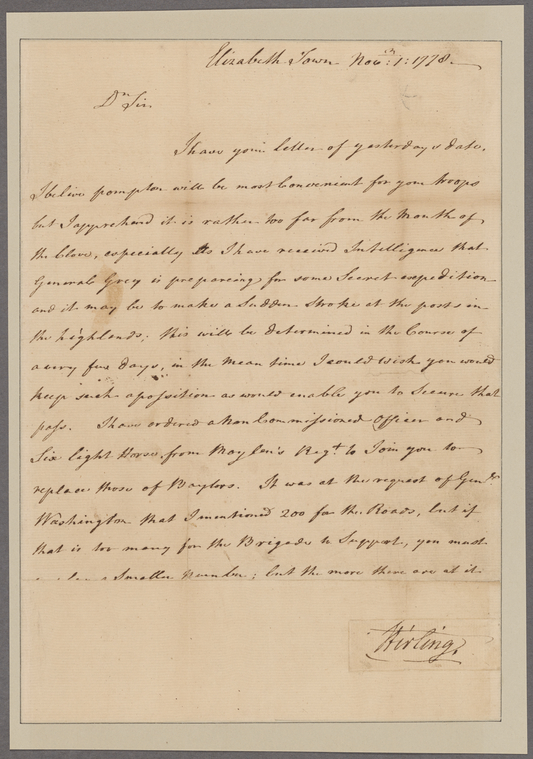 Elizabeth Town Nov.th 1: 1778.
Dr Sir.
I have your letter of yesterdays date.
I belive pompton will be most Convenient for your troops
but I apprehend it is rather too far from the Mouth of
the Clove, especially as I have received Intelligence that
General Grey is prepareing for some Secret expedition
and it may be to make a Sudden Stroke at the posts in
the highlands; this will be determined in the Course of
a very few days, in the mean time I could wish you would
keep such a position as would enable you to Secure that
pass. I have ordered a Non Commissioned Officer and
Six light Horse from Moylen's Regt to Join you to
replace those of Baylors. It was at the request of Genl.
Washington that I mentioned 200 for the Roads, but if
that is too many for the Brigade to Support, you must
a Smaller Number; but the more there are at it
Stirling,